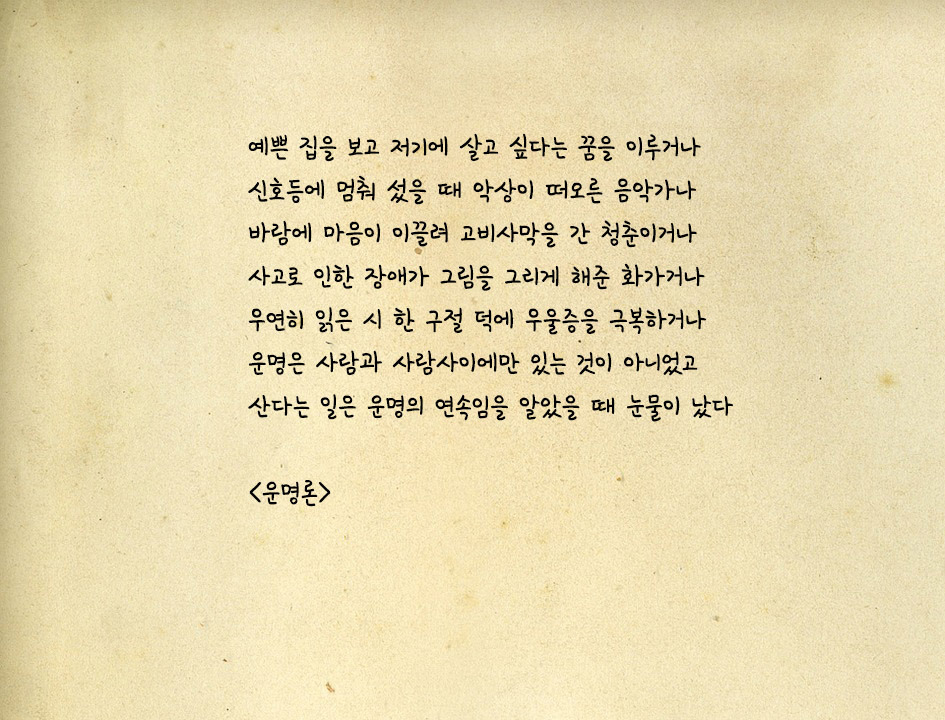 예쁜 집을 보고 저기에 살고 싶다는 꿈을 이루거나
신호등에 멈춰 섰을 때 악상이 떠오른 음악가나
바람에 마음이 이끌려 고비사막을 간 청춘이거나
사고로 인한 장애가 그림을 그리게 해준 화가거나
우연히 읽은 시 한 구절 덕에 우울증을 극복하거나
운명은 사람과 사람사이에만 있는 것이 아니었고
산다는 일은 운명의 연속임을 알았을 때 눈물이 났다
<운명론>